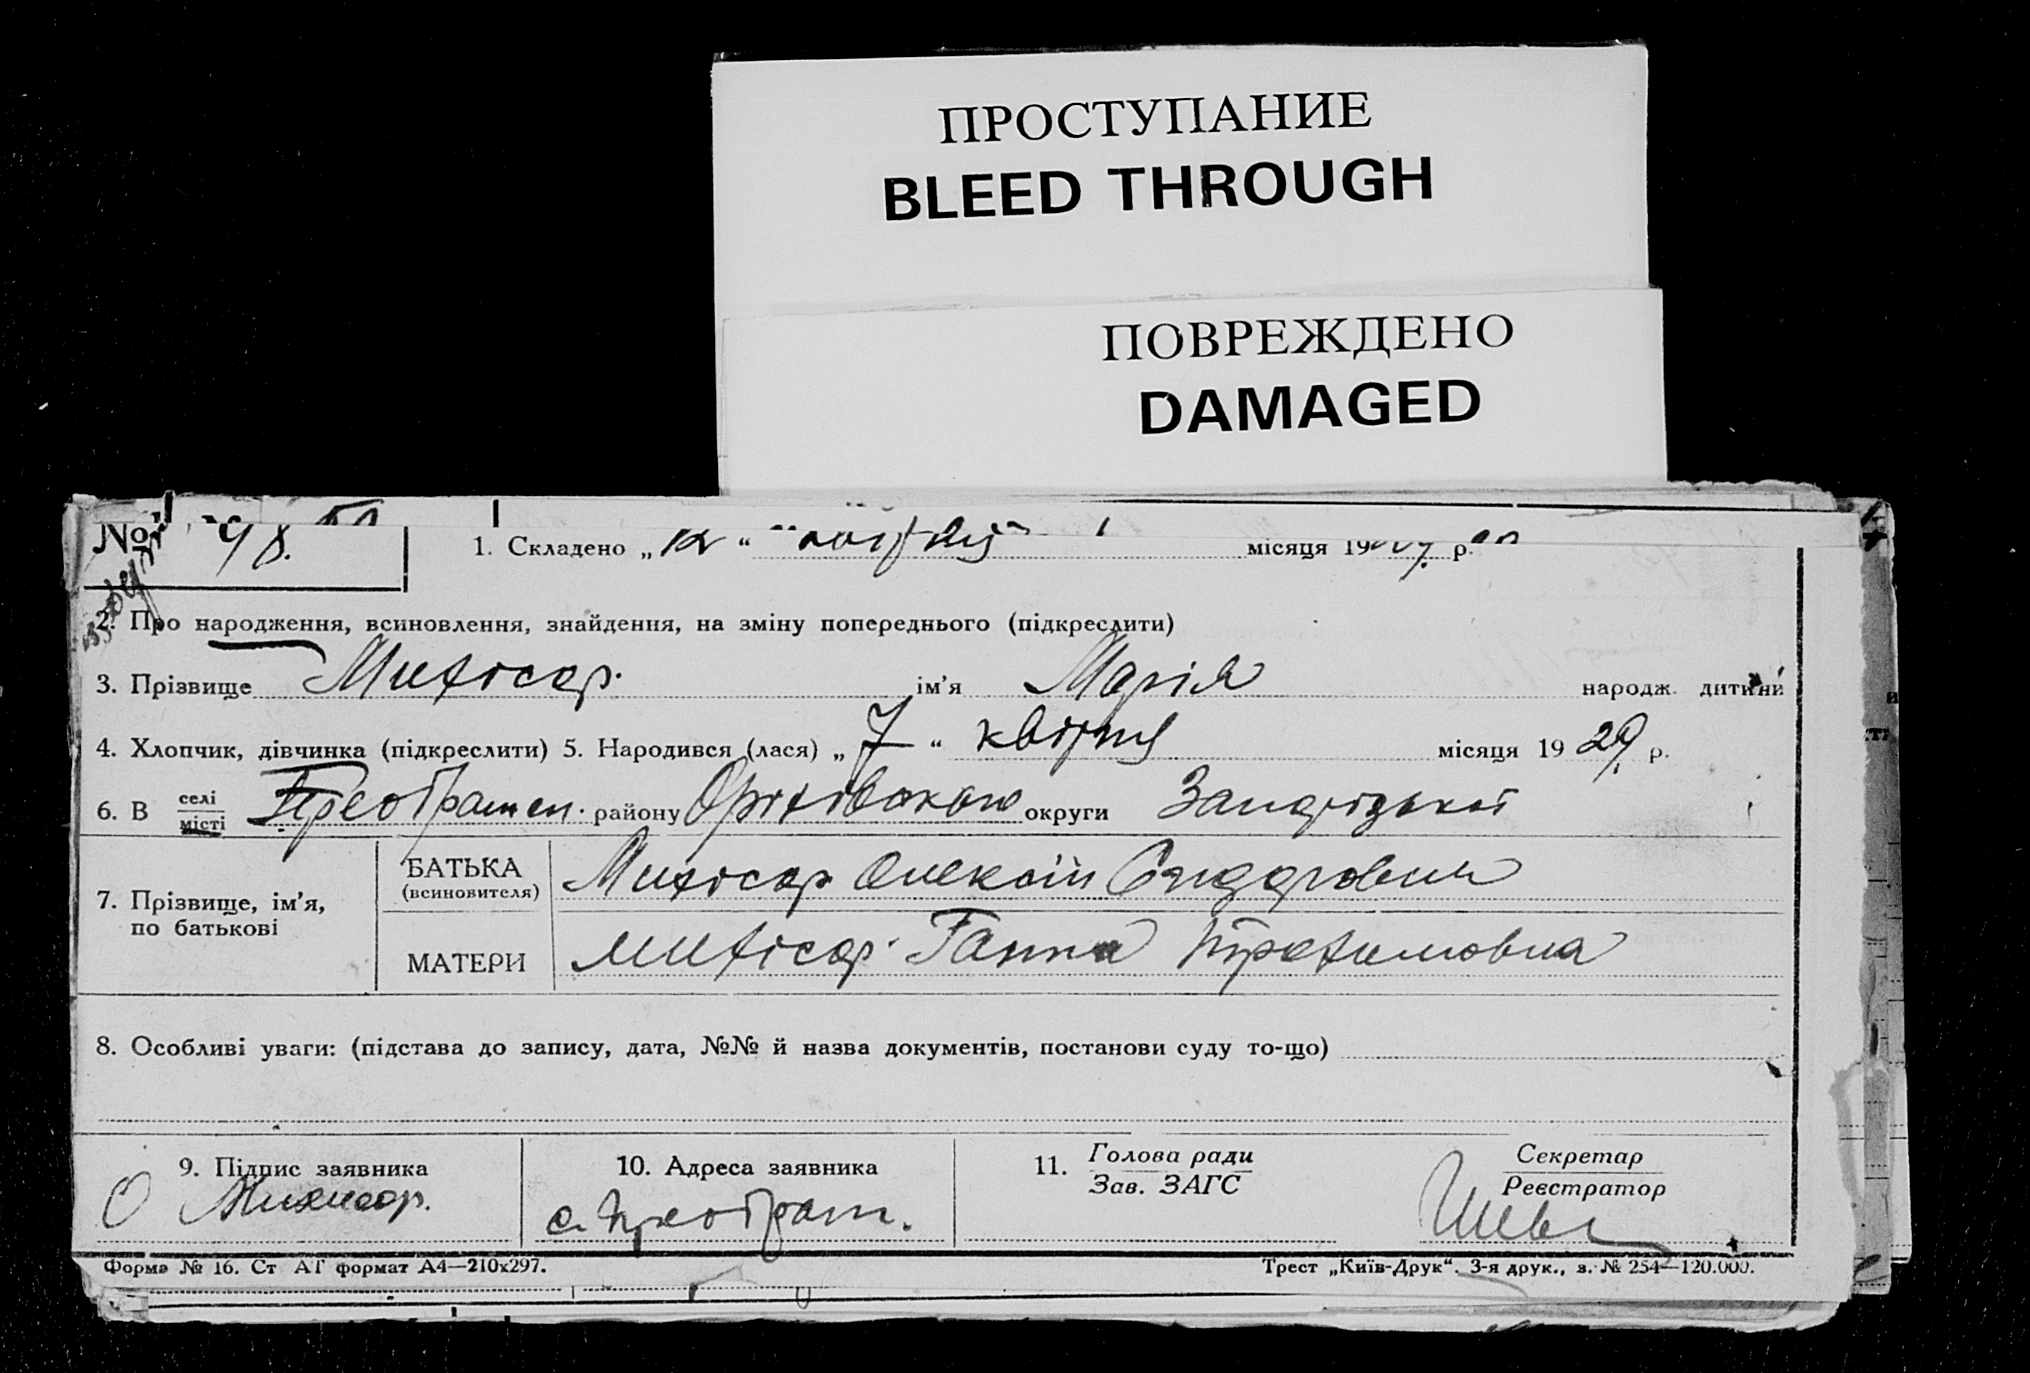 ПРОСТУПАНИЕ
BLEED THROUGH
ПОВРЕЖДЕНО
DAMAGED
№ 98.
1. Складено „ 12 “ квітня місяця 1929. р.
2. Про народження, всиновлення, знайдення, на зміну попереднього (підкреслити)
3. Прізвище Михісор. ім'я Марія народж. дитини
4. Хлопчик, дівчинка (підкреслити) 5. Народився (лася) „ 7 “ квітня місяця 1929 р.
6. В селі місті Преображен. району Оріхівського округи Запорізької
7. Прізвище, ім'я, по батькові
БАТЬКА (всиновителя) Михісор Олексій Сидорович
МАТЕРИ Михісор Ганна Трохимовна
8. Особливі уваги: (підстава до запису, дата, №№ й назва документів, постанови суду то-що)
9. Підпис заявника
О Михисор.
10. Адреса заявника
с. Преображ.
11. Голова ради
Зав. ЗАГС
Секретар
Реєстратор
Форма № 16. Ст АТ формат А4—210х297.
Трест „Київ-Друк“. 3-я друк., з. № 254—120.000.